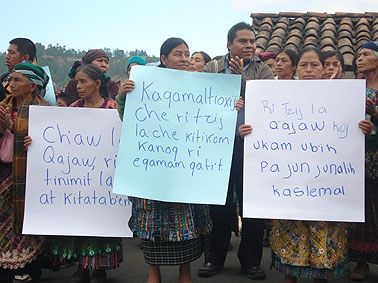 Chiaw l
Qajaw, ri
tinimit la
at kitatab'en
Kaqamaltioxij
che ri tzij
la che kitikom
kanoq ri
eqamam qatit.
Ri Tzij la
qajaw koj
ukam ubik
pa jun junalik
kaslemal